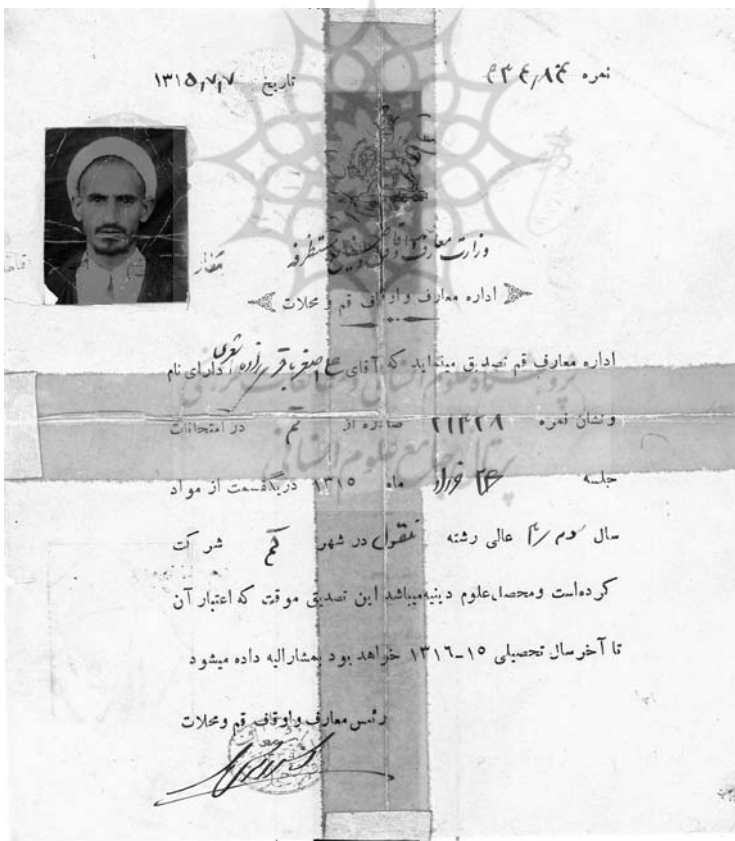 نمره
تاریخ ۱۳۱۵,۷,۷
وزارت معارف و اوقاف و صنایع مستظرفه
اداره معارف و اوقاف قم و محلات
اداره معارف قم تصدیق مینماید که آقای علی اصغر باقر زاده دارای نام
و نشان نمره ۲۱۴۲۸ صادره از قم در امتحانات
جلسه ۲۶ خرداد ماه ۱۳۱۵ دریکقسمت از مواد
سال عالی رشته منقول در شهر قم شرکت
کرده‌است ومحصل علوم دینیه میباشد این تصدیق موقت که اعتبار آن
تا آخر سال تحصیلی ۱۵-۱۳۱۶ خواهد بود بمشارالیه داده میشود
رئیس معارف و اوقاف قم ومحلات
پژوهشگاه علوم انسانی و مطالعات فرهنگی
پرتال جامع علوم انسانی